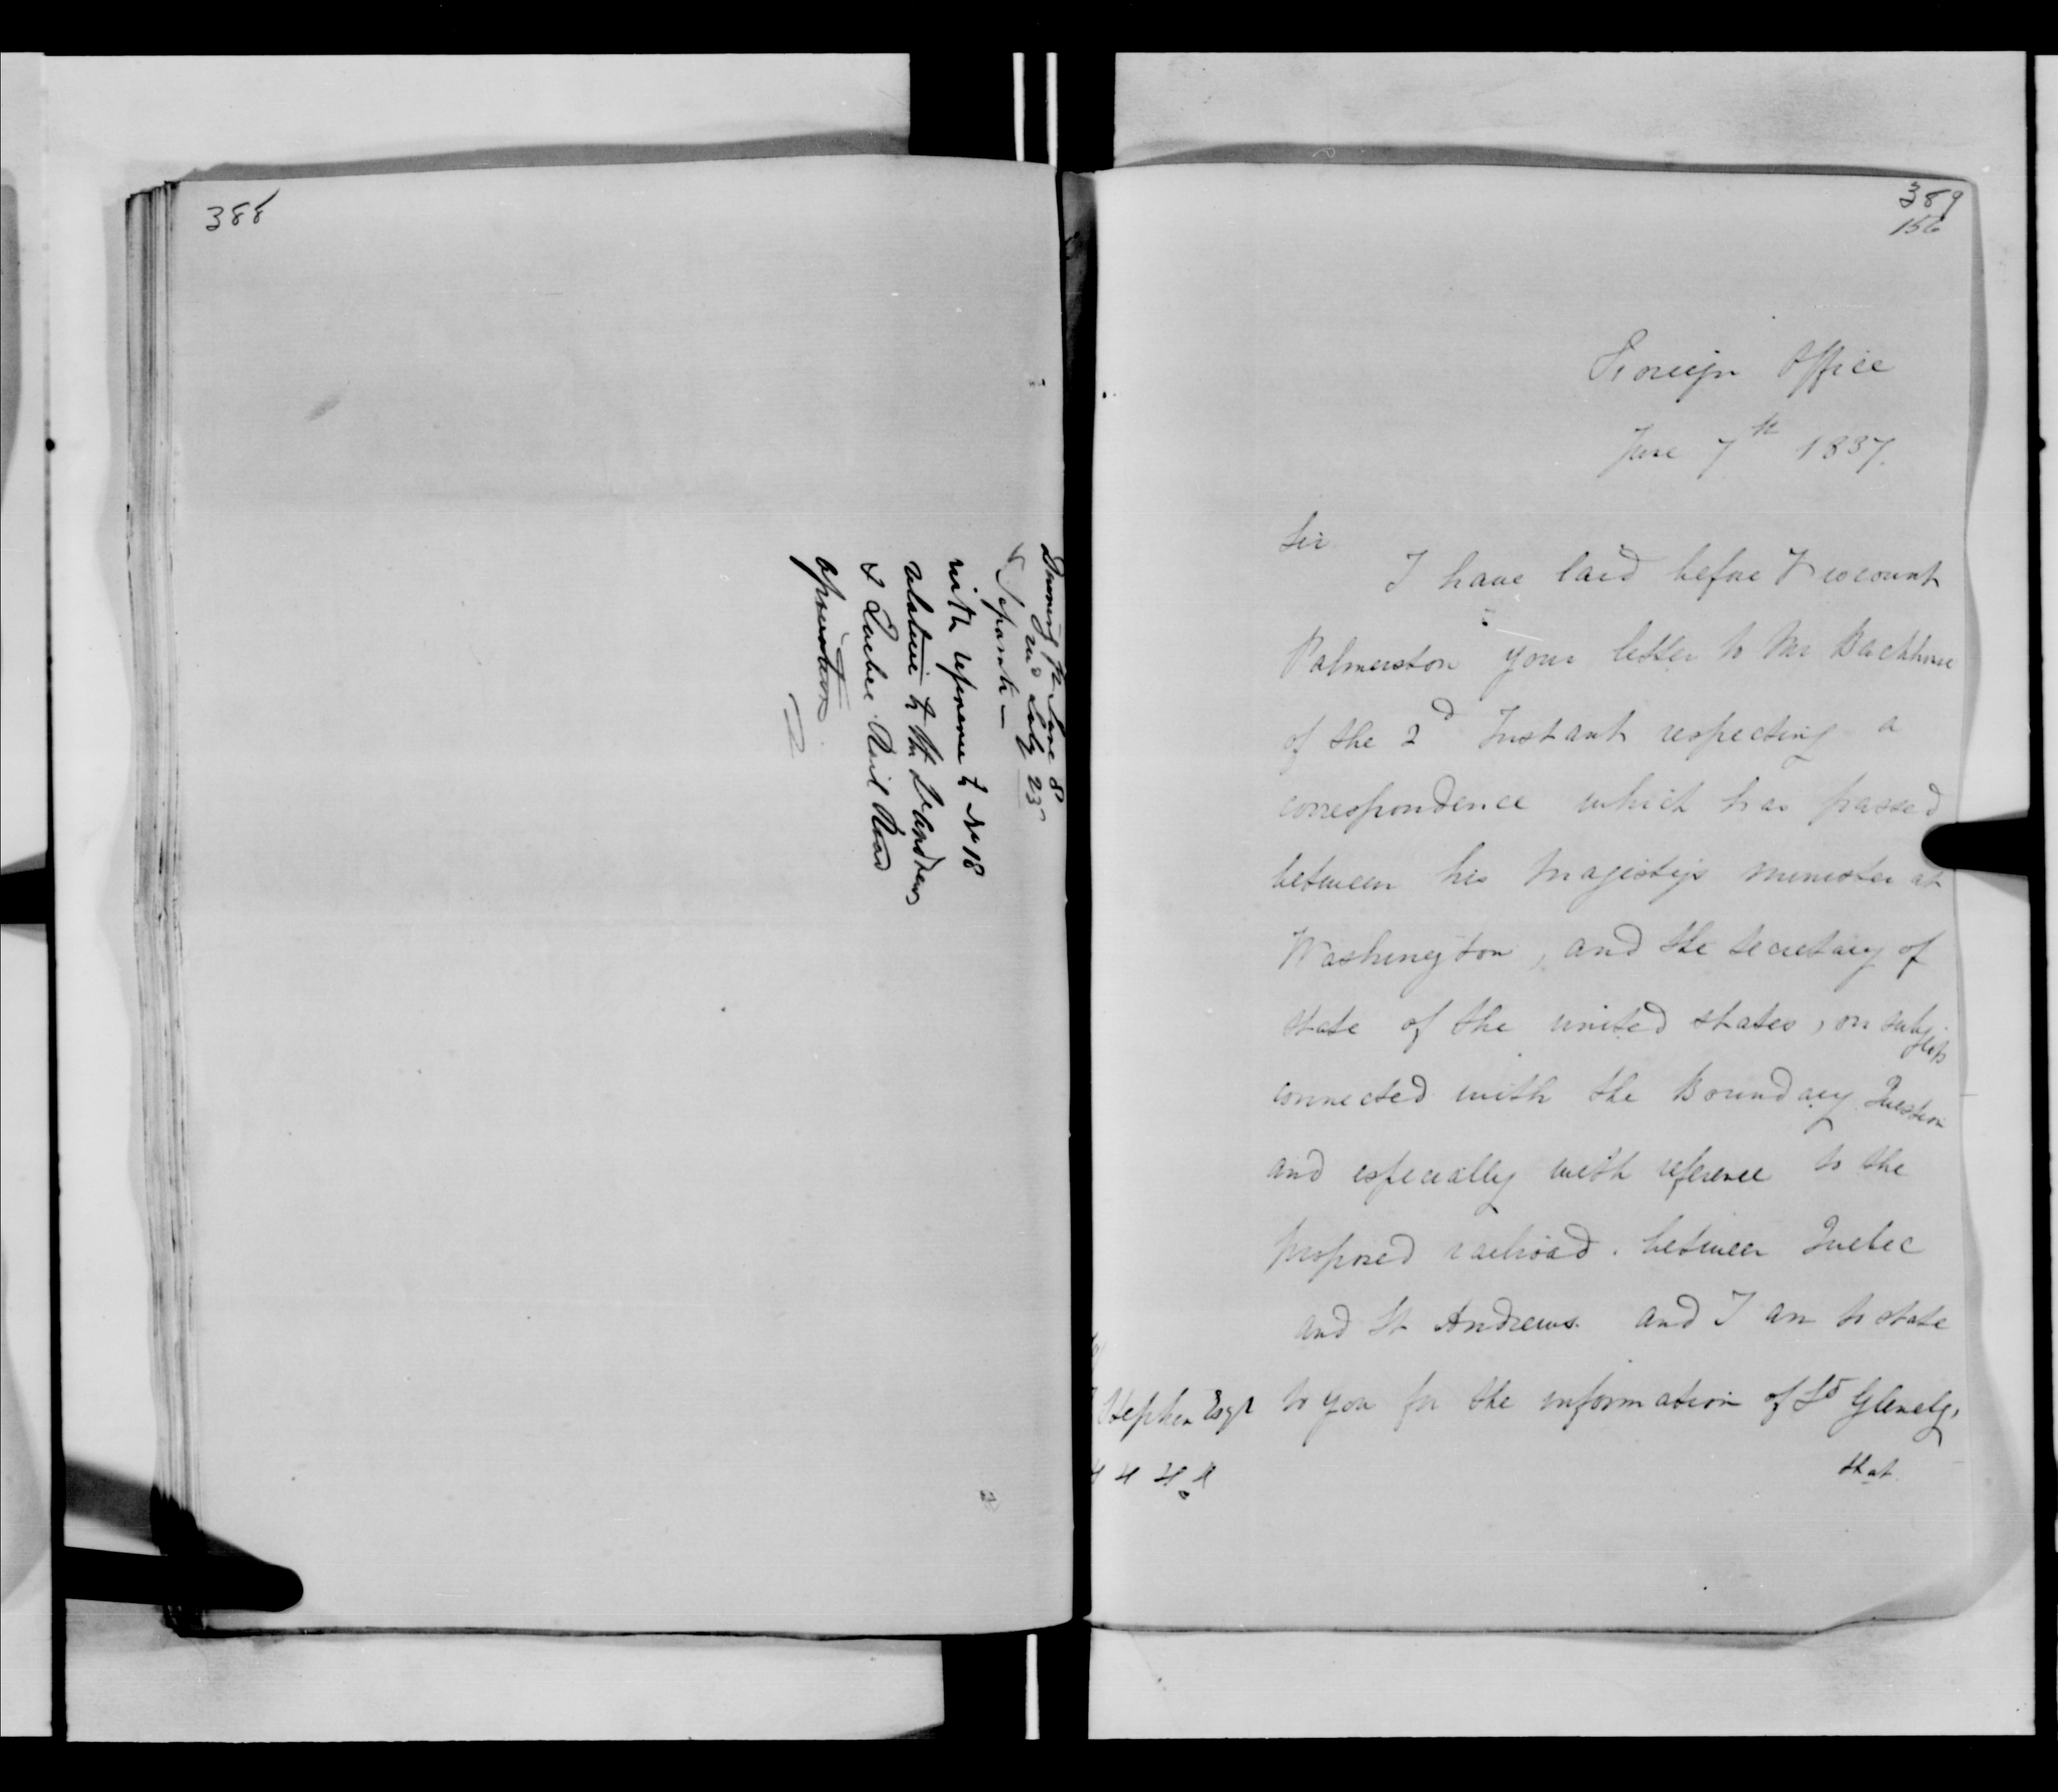 388
Downing St June 8
recd July 23
Separate —
with reference to No 18
relative to the St Andrews
& Quebec Rail Road
operations
389
156
Foreign Office
June 7th 1837.
Sir
I have laid before Viscount
Palmerston your letter to Mr Backhouse
of the 2d Instant respecting a
correspondence which has passed
between his Majesty's minister at
Washington, and the Secretary of
State of the united states, on subjects
connected with the Boundary Question
and especially with reference to the
proposed railroad. between Quebec
and St Andrews. and I am to state
Stephen Esqr to you for the information of Ld Glenelg,
that